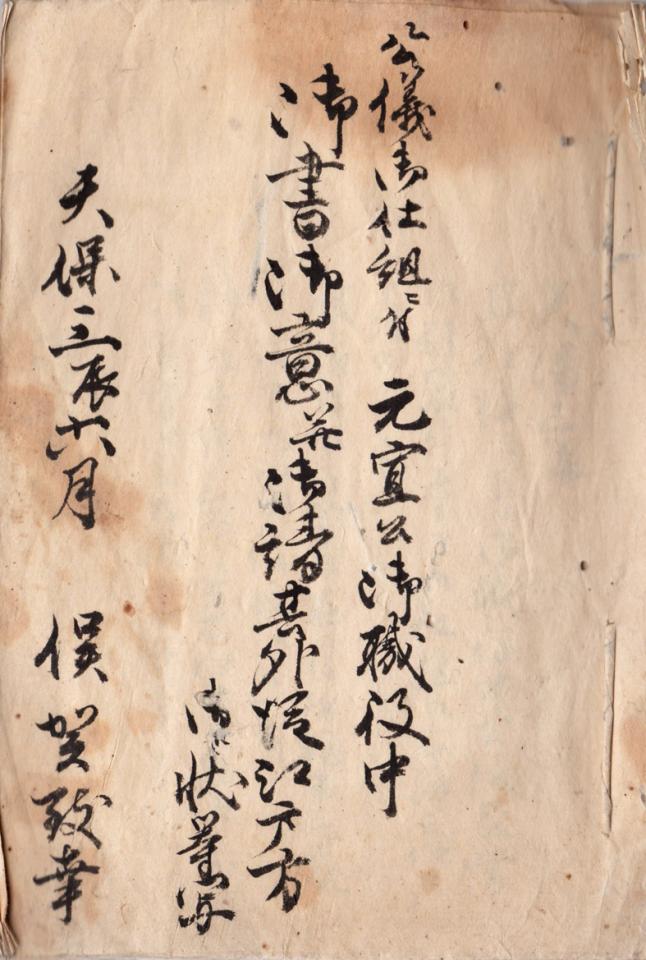 公儀御仕組ニ付 元宣公御職役中
御書御意并御請其外従江戸方
御状写
天保三辰六月 俣賀致幸